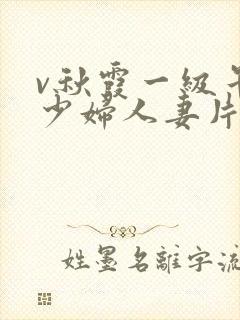 v秋霞一级
少婦人妻片
姓墨名離字流